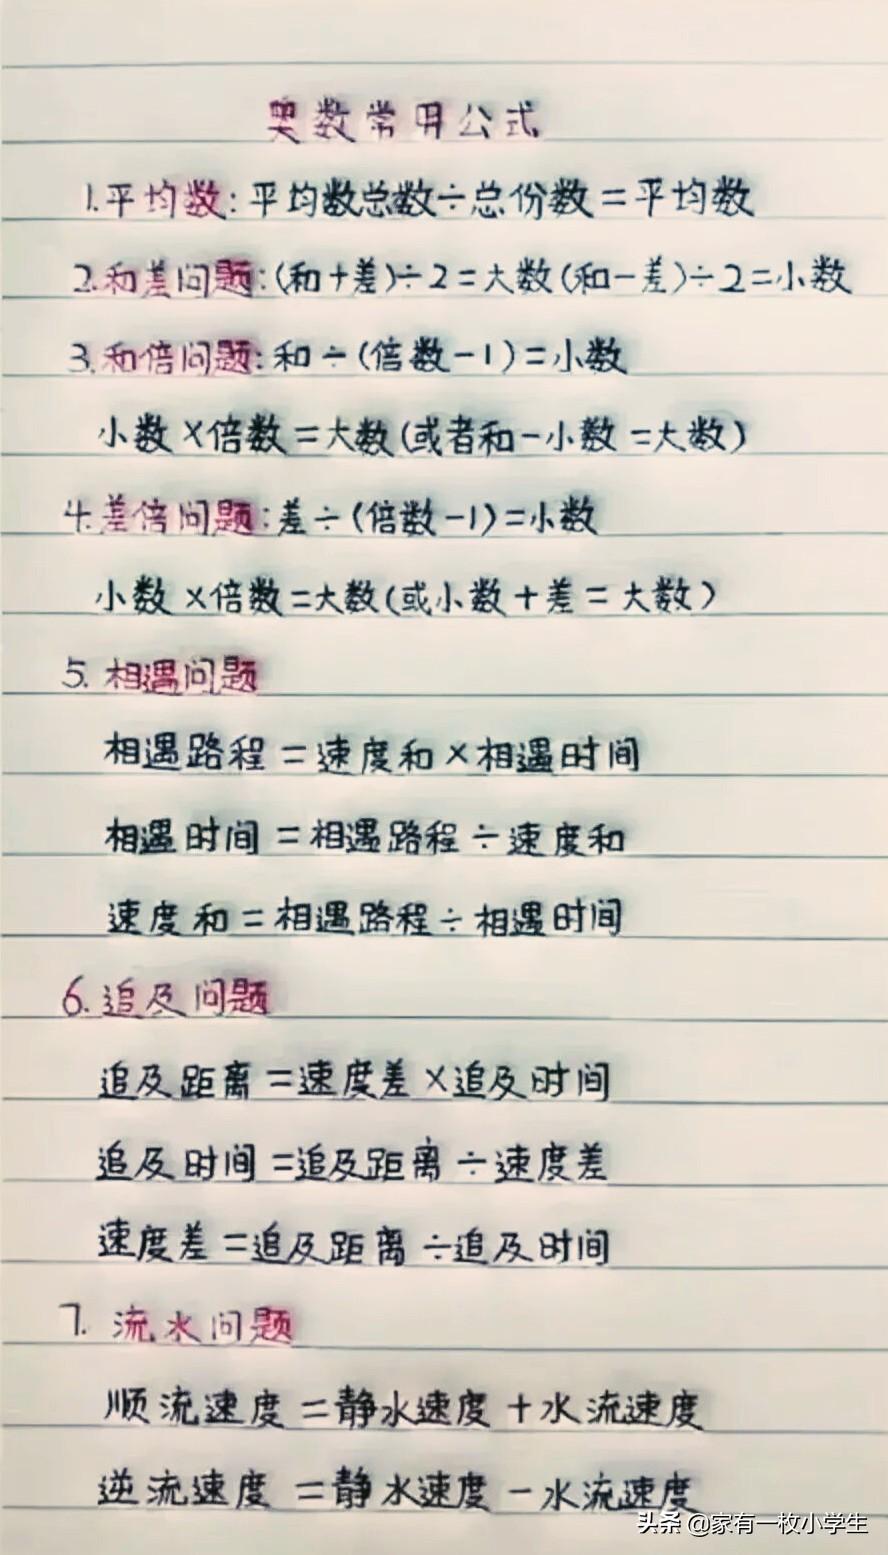 奥数常用公式
1.平均数:平均数总数÷总份数=平均数
2.和差问题:(和+差)÷2=大数(和-差)÷2=小数
3.和倍问题:和÷(倍数-1)=小数
小数×倍数=大数(或者和-小数=大数)
4.差倍问题:差÷(倍数-1)=小数
小数×倍数=大数(或小数+差=大数)
5.相遇问题
相遇路程=速度和×相遇时间
相遇时间=相遇路程÷速度和
速度和=相遇路程÷相遇时间
6.追及问题
追及距离=速度差×追及时间
追及时间=追及距离÷速度差
速度差=追及距离÷追及时间
7.流水问题
顺流速度=静水速度+水流速度
逆流速度=静水速度-水流速度
头条 @家有一枚小学生